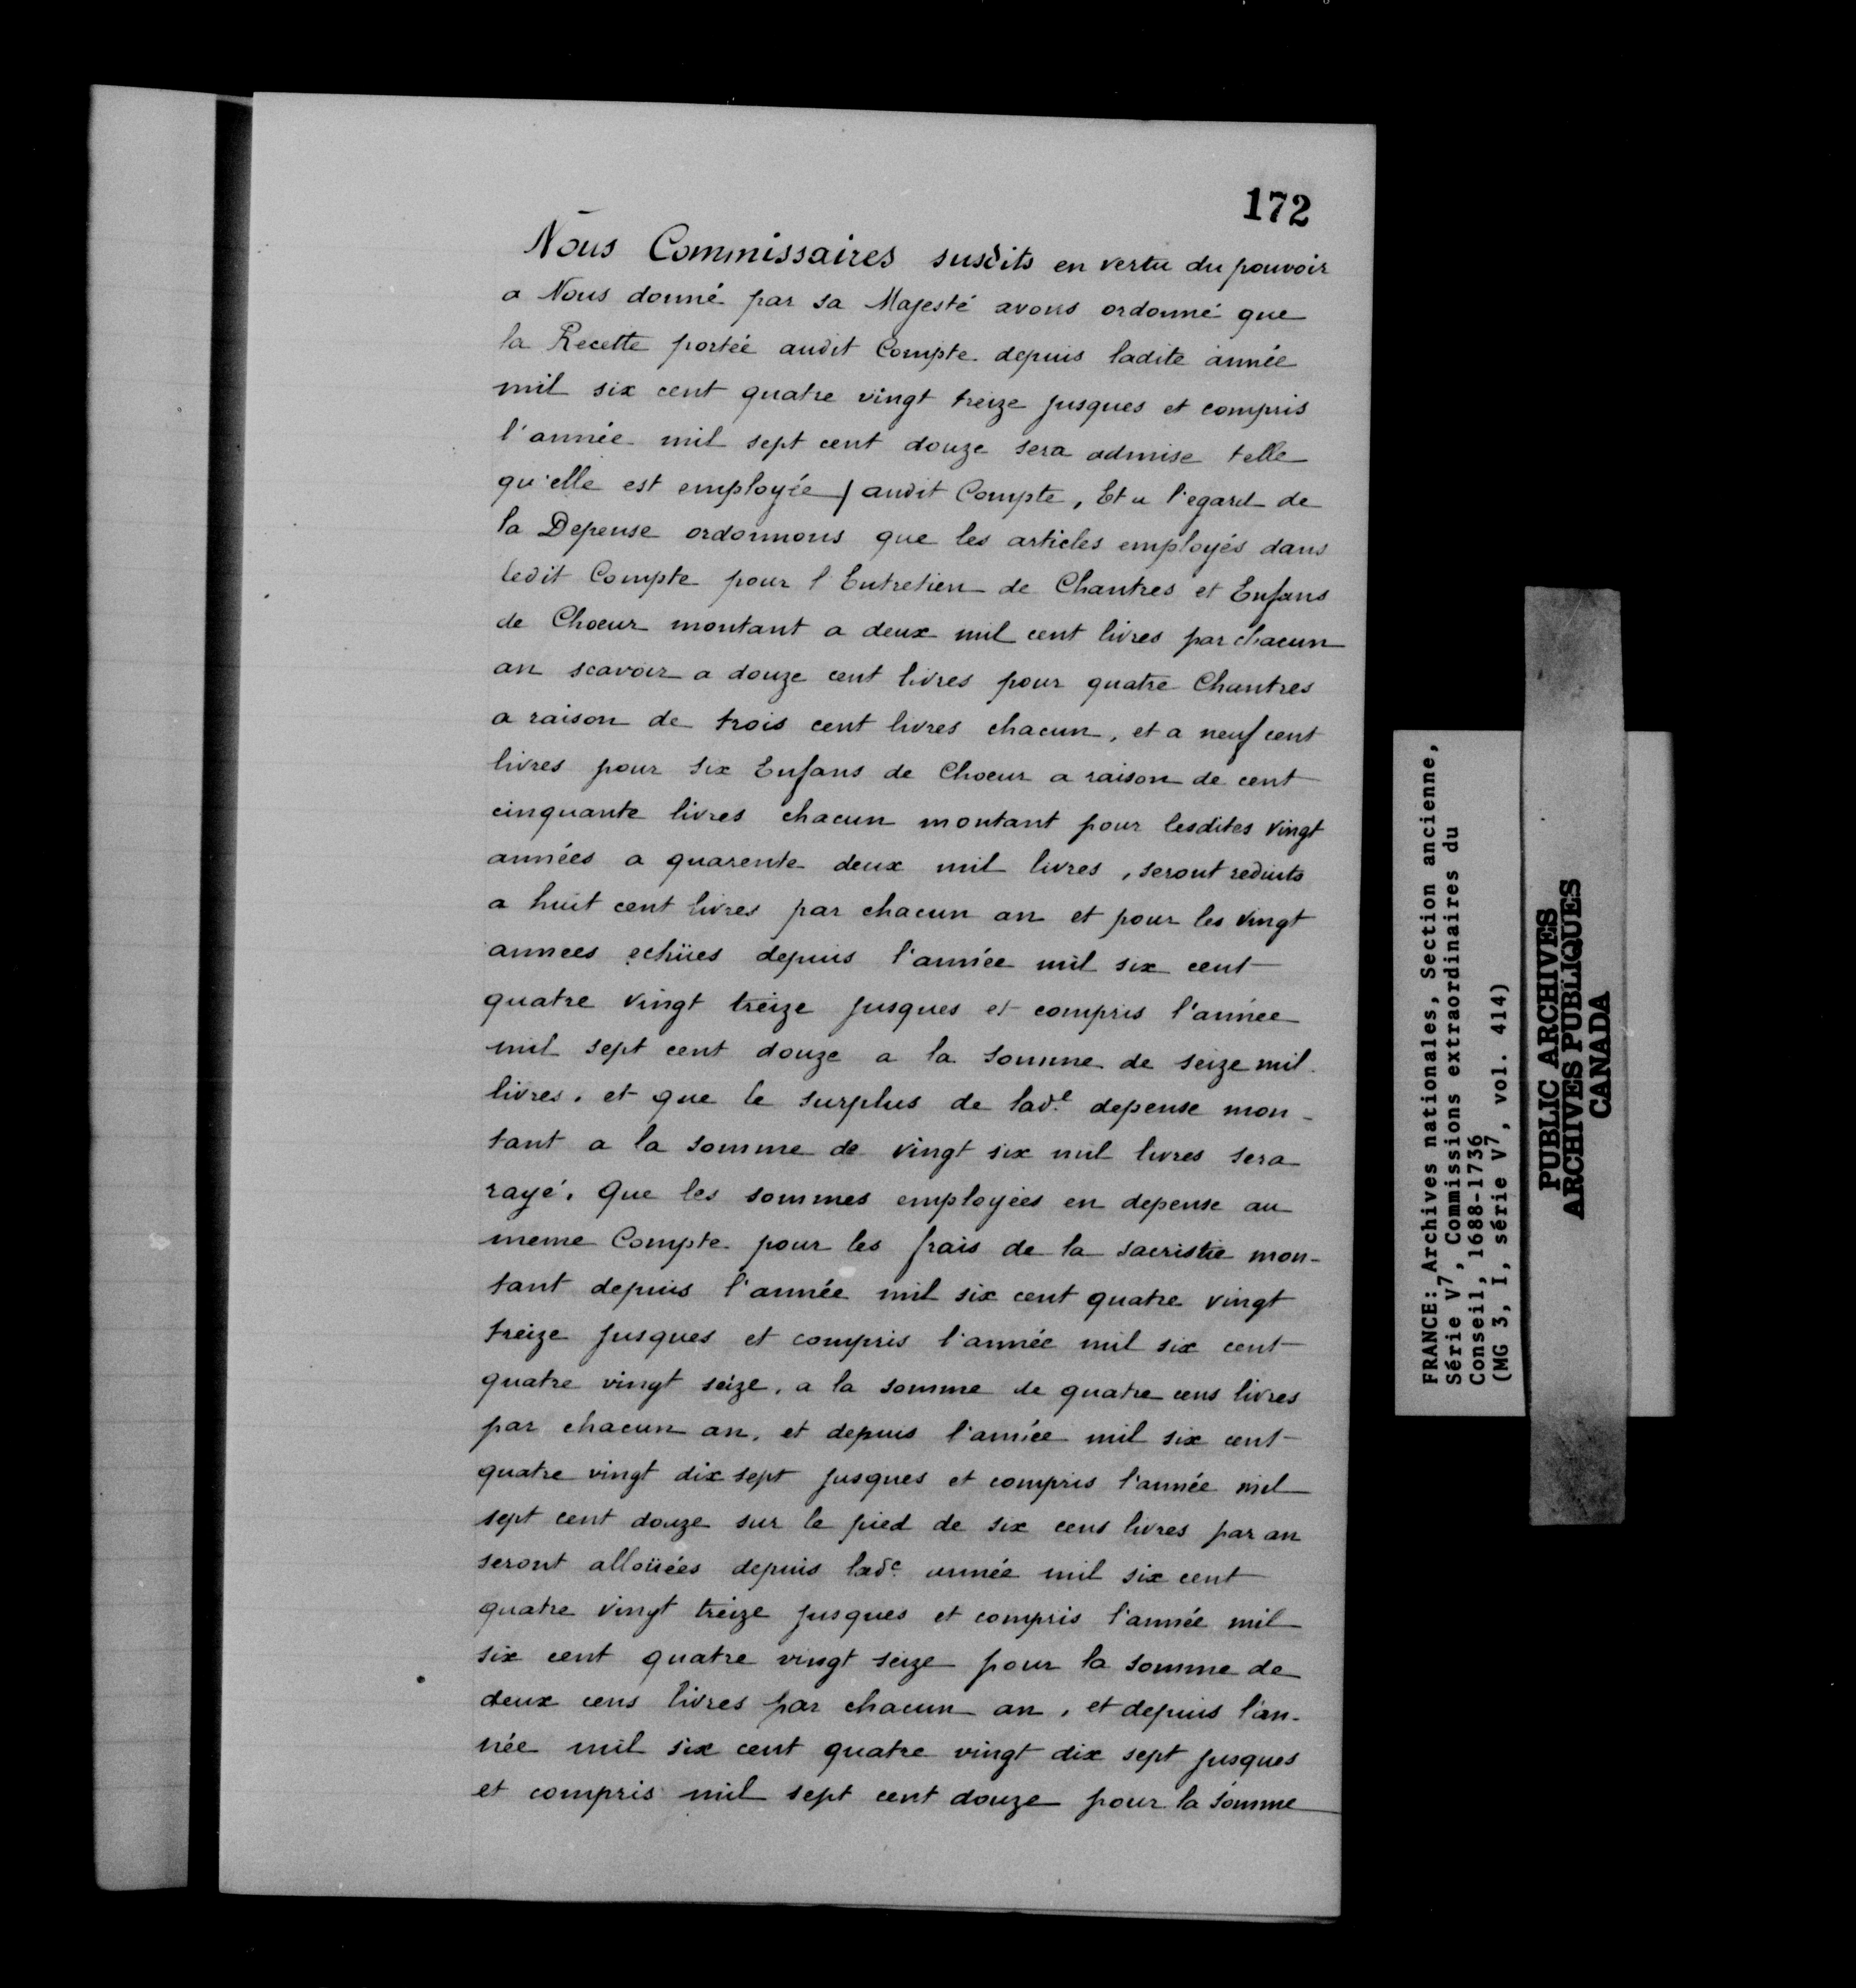 172
Nous Commissaires susdits en vertu du pouvoir
a Nous donné par sa Majesté avons ordonné que
la Recette portée audit Compte depuis ladite année
mil six cent quatre vingt treize jusques et compris
l'année mil sept cent douze sera admise telle
qu'elle est employée / audit Compte, Et a l'egard de
la Depense ordonnons que les articles employés dans
ledit Compte pour l'Entretien de Chantres et Enfans
de Choeur montant a deux mil cent livres par chacun
an scavoir a douze cent livres pour quatre Chantres
a raison de trois cent livres chacun, et a neuf cent
livres pour six Enfans de Choeur a raison de cent
cinquante livres chacun montant pour lesdites vingt
années a quarente deux mil livres, seront reduits
a huit cent livres par chacun an et pour les vingt
annees echües depuis l'année mil six cent
quatre vingt treize jusques et compris l'année
mil sept cent douze a la somme de seize mil
livres, et que le surplus de lad.e depense mon-
tant a la somme de vingt six mil livres sera
rayé. Que les sommes employées en depense au
meme Compte pour les frais de la sacristie mon-
tant depuis l'année mil six cent quatre vingt
treize jusques et compris l'année mil six cent
quatre vingt seize, a la somme de quatre cens livres
par chacun an, et depuis l'année mil six cent
quatre vingt dix sept jusques et compris l'année mil
sept cent douze sur le pied de six cens livres par an
seront alloüées depuis lad.e année mil six cent
quatre vingt treize jusques et compris l'année mil
six cent quatre vingt seize pour la somme de
deux cens livres par chacun an, et depuis l'an-
née mil six cent quatre vingt dix sept jusques
et compris mil sept cent douze pour la somme
FRANCE: Archives nationales, Section ancienne,
Série V7, Commissions extraordinaires du
Conseil, 1688-1736
(MG 3, I, série V7, vol. 414)
PUBLIC ARCHIVES
ARCHIVES PUBLIQUES
CANADA